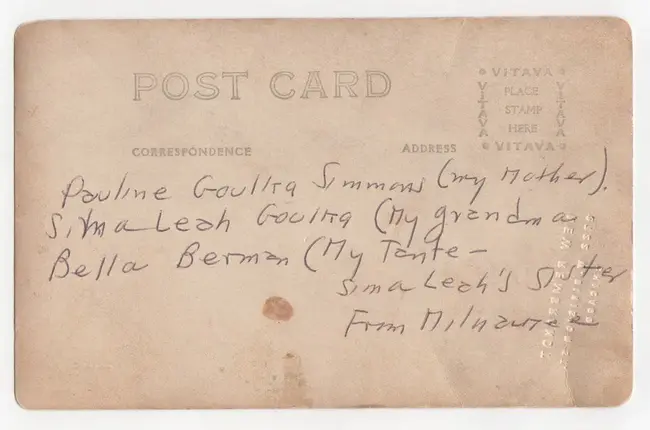 POST CARD
VITAVA
VITAVA
PLACE
STAMP
HERE
VITAVA
VITAVA
CORRESPONDENCE
ADDRESS
Pauline Goultra Simmons (my Mother).
Sima Leah Goultra (My grandma
Bella Berman (My Tante –
Sima Leah's Sister
From Milnawree